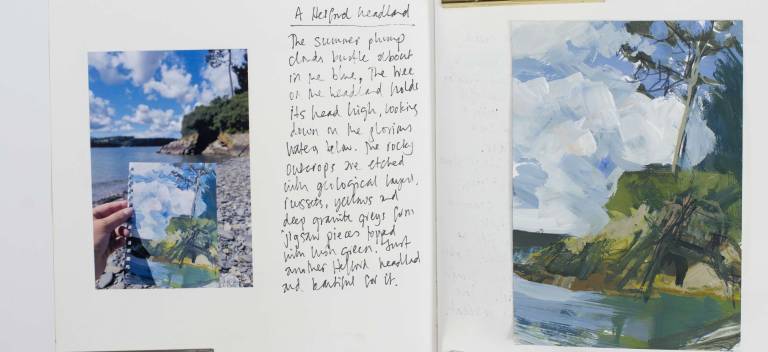 A Helford headland
The summer plump
clouds bustle about
in the blue, The tree
on the headland holds
its head high, looking
down on the glorious
waters below. The rocky
outcrops are etched
with geological layers,
russets, yellows and
deep granite greys form
jigsaw pieces topped
with lush green. Just
another Helford headland
and beautiful for it.